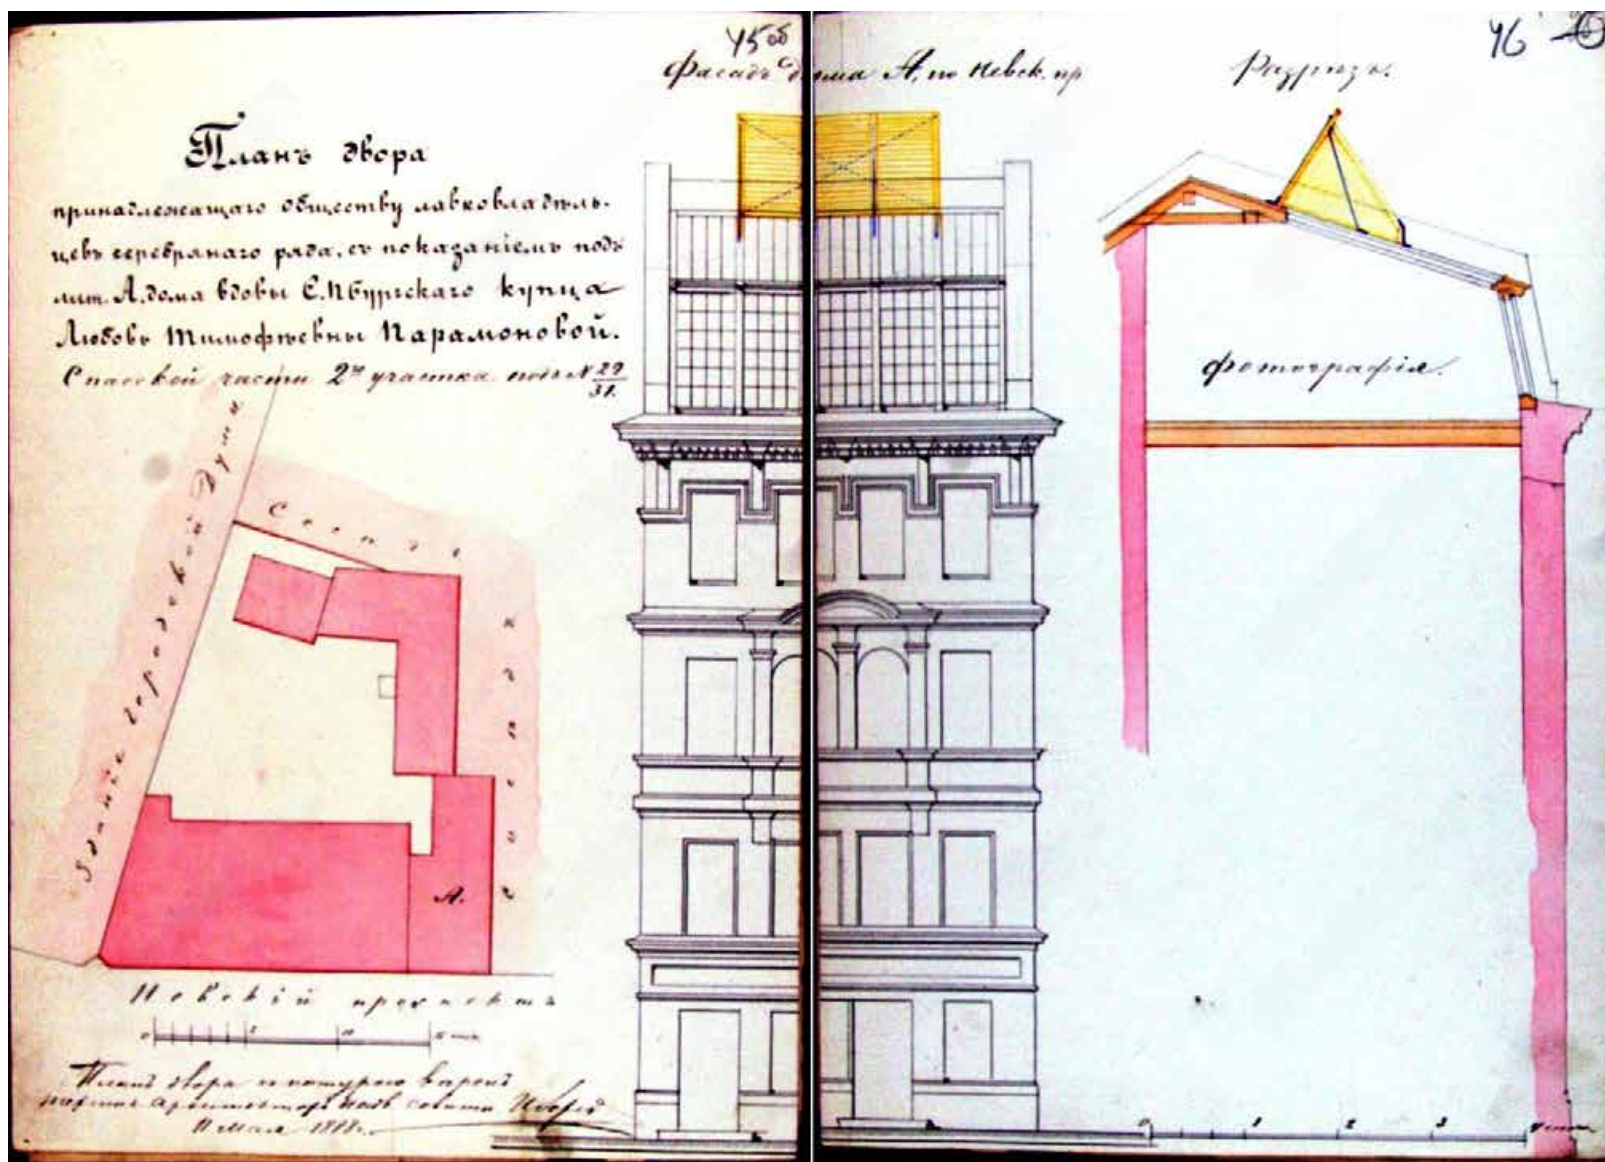 45 об
46
Фасадъ дома А, по Невск. пр
Разрѣзъ.
Планъ двора
принадлежащаго обществу лавковладѣль-
цевъ серебрянаго ряда, съ показаніемъ подъ
лит. А. дома вдовы С.Пбургскаго купца
Любовь Тимофѣевны Парамоновой.
Спасской части 2го участка подъ № 29/31.
Зданіе городской Думы
Сосѣдъ
Сосѣдъ
А.
Фотографія.
Невскій проспектъ
0
5
10
15 саж.
Планъ двора съ натурою вѣренъ
Архитекторъ надв. совѣтн.
11 Мая 1888 г.
0 1 2 3 4 саж.